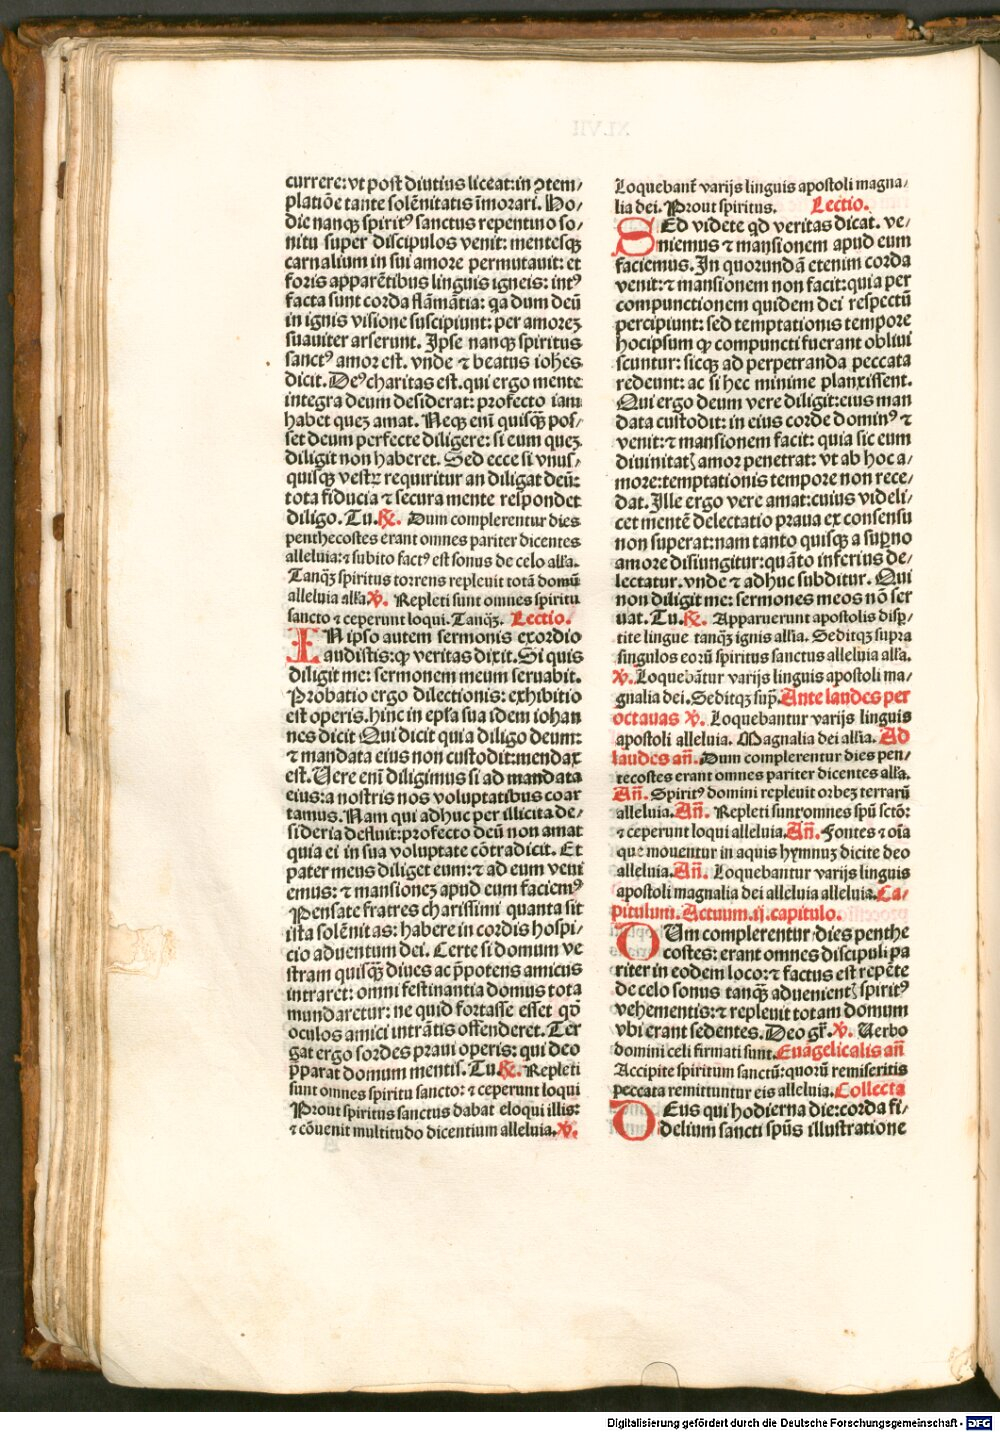 currere: vt post diutius liceat: in ꝯtem⸗
platiõe tante solẽnitatis ĩmorari. Ho⸗
die nanqꝫ spiritꝰ sanctus repentino so⸗
nitu super discipulos venit: mentesqꝫ
carnalium in sui amore permutauit: et
foris apparẽtibus linguis igneis: intꝰ
facta sunt corda flãmãtia: qa dum deũ
in ignis visione suscipiunt: per amoreꝫ
suauiter arserunt. Ipse nanqꝫ spiritus
sanctꝰ amor est. vnde ⁊ beatus iohẽs
dicit. Deꝰ charitas est. qui ergo mente
integra deum desiderat: profecto iam
habet queꝫ amat. Neqꝫ enĩ quisqꝫ pos⸗
set deum perfecte diligere: si eum queꝫ
diligit non haberet. Sed ecce si vnus⸗
quisqꝫ vestꝝ requiritur an diligat deũ:
tota fiducia ⁊ secura mente respondet
diligo. Tu. ℟. Dum complerentur dies
penthecostes erant omnes pariter dicentes
alleluia: ⁊ subito factꝰ est sonus de celo all'a.
Tanqꝫ spiritus torrens repleuit totã domũ
alleluia all'a ℣. Repleti sunt omnes spiritu
sancto ⁊ ceperunt loqui. Tanqꝫ. Lectio.
IN ipso autem sermonis exordio
audistis: qꝫ veritas dixit. Si quis
diligit me: sermonem meum seruabit.
Probatio ergo dilectionis: exhibitio
est operis. hinc in ep̃la sua idem iohan
nes dicit Qui dicit quia diligo deum:
⁊ mandata eius non custodit: mendax
est. Uere enĩ diligimus si ad mandata
eius: a nostris nos voluptatibus coar
tamus. Nam qui adhuc per illicita de⸗
sideria defluit: profecto deũ non amat
quia ei in sua voluptate cõtradicit. Et
pater meus diliget eum: ⁊ ad eum veni
emus: ⁊ mansioneꝫ apud eum faciemꝰ
Pensate fratres charissimi quanta sit
ista solẽnitas: habere in cordis hospi⸗
cio aduentum dei. Certe si domum ve
stram quisqꝫ diues ac p̃potens amicus
intraret: omni festinantia domus tota
mundaretur: ne quid fortasse esset qõ
oculos amici intrãtis offenderet. Ter
gat ergo sordes praui operis: qui deo
p̃parat domum mentis. Tu. ℟. Repleti
sunt omnes spiritu sancto: ⁊ ceperunt loqui
Prout spiritus sanctus dabat eloqui illis:
⁊ cõuenit multitudo dicentium alleluia. ℣.
Loquebant̃ varijs linguis apostoli magna⸗
lia dei. Prout spiritus. Lectio.
SEd videte qd veritas dicat. ve⸗
niemus ⁊ mansionem apud eum
faciemus. In quorundã etenim corda
venit: ⁊ mansionem non facit: quia per
compunctionem quidem dei respectũ
percipiunt: sed temptationis tempore
hoc ipsum qꝫ compuncti fuerant obliui
scuntur: sicqꝫ ad perpetranda peccata
redeunt: ac si hec minime planxissent.
Qui ergo deum vere diligit: eius man
data custodit: in eius corde dominꝰ ⁊
venit: ⁊ mansionem facit: quia sic eum
diuinitatꝭ amor penetrat: vt ab hoc a⸗
more: temptationis tempore non rece⸗
dat. Ille ergo vere amat: cuius videli⸗
cet mentẽ delectatio praua ex consensu
non superat: nam tanto quisqꝫ a suꝑno
amore disiungitur: quãto inferius de⸗
lectatur. vnde ⁊ adhuc subditur. Qui
non diligit me: sermones meos nõ ser
uat. Tu. ℟. Apparuerunt apostolis disꝑ⸗
tite lingue tanqꝫ ignis all'ia. Seditqꝫ supra
singulos eorũ spiritus sanctus alleluia all'a.
℣. Loquebãtur varijs linguis apostoli ma⸗
gnalia dei. Seditqꝫ sup̃. Ante laudes per
octauas ℣. Loquebantur varijs linguis
apostoli alleluia. Magnalia dei all'ia. Ad
laudes añ. Dum complerentur dies pen⸗
tecostes erant omnes pariter dicentes all'a.
Añ. Spiritꝰ domini repleuit orbeꝫ terrarũ
alleluia. Añ. Repleti sunt omnes sp̃u sctõ:
⁊ ceperunt loqui alleluia. Añ. Fontes ⁊ oĩa
que mouentur in aquis hymnuꝫ dicite deo
alleluia. Añ. Loquebantur varijs linguis
apostoli magnalia dei alleluia alleluia. Ca⸗
pitulum. Actuum. ij. capitulo.
DUm complerentur dies penthe
costes: erant omnes discipuli pa
riter in eodem loco: ⁊ factus est repẽte
de celo sonus tanqꝫ aduenientꝭ spiritꝰ
vehementis: ⁊ repleuit totam domum
vbi erant sedentes. Deo gr̃. ℣. Uerbo
domini celi firmati sunt. Euãgelicalis añ
Accipite spiritum sanctũ: quorũ remiseritis
peccata remittuntur eis alleluia. Collecta
DEus qui hodierna die: corda fi⸗
delium sancti sp̃us illustratione
Digitalisierung gefördert durch die Deutsche Forschungsgemeinschaft - DFG